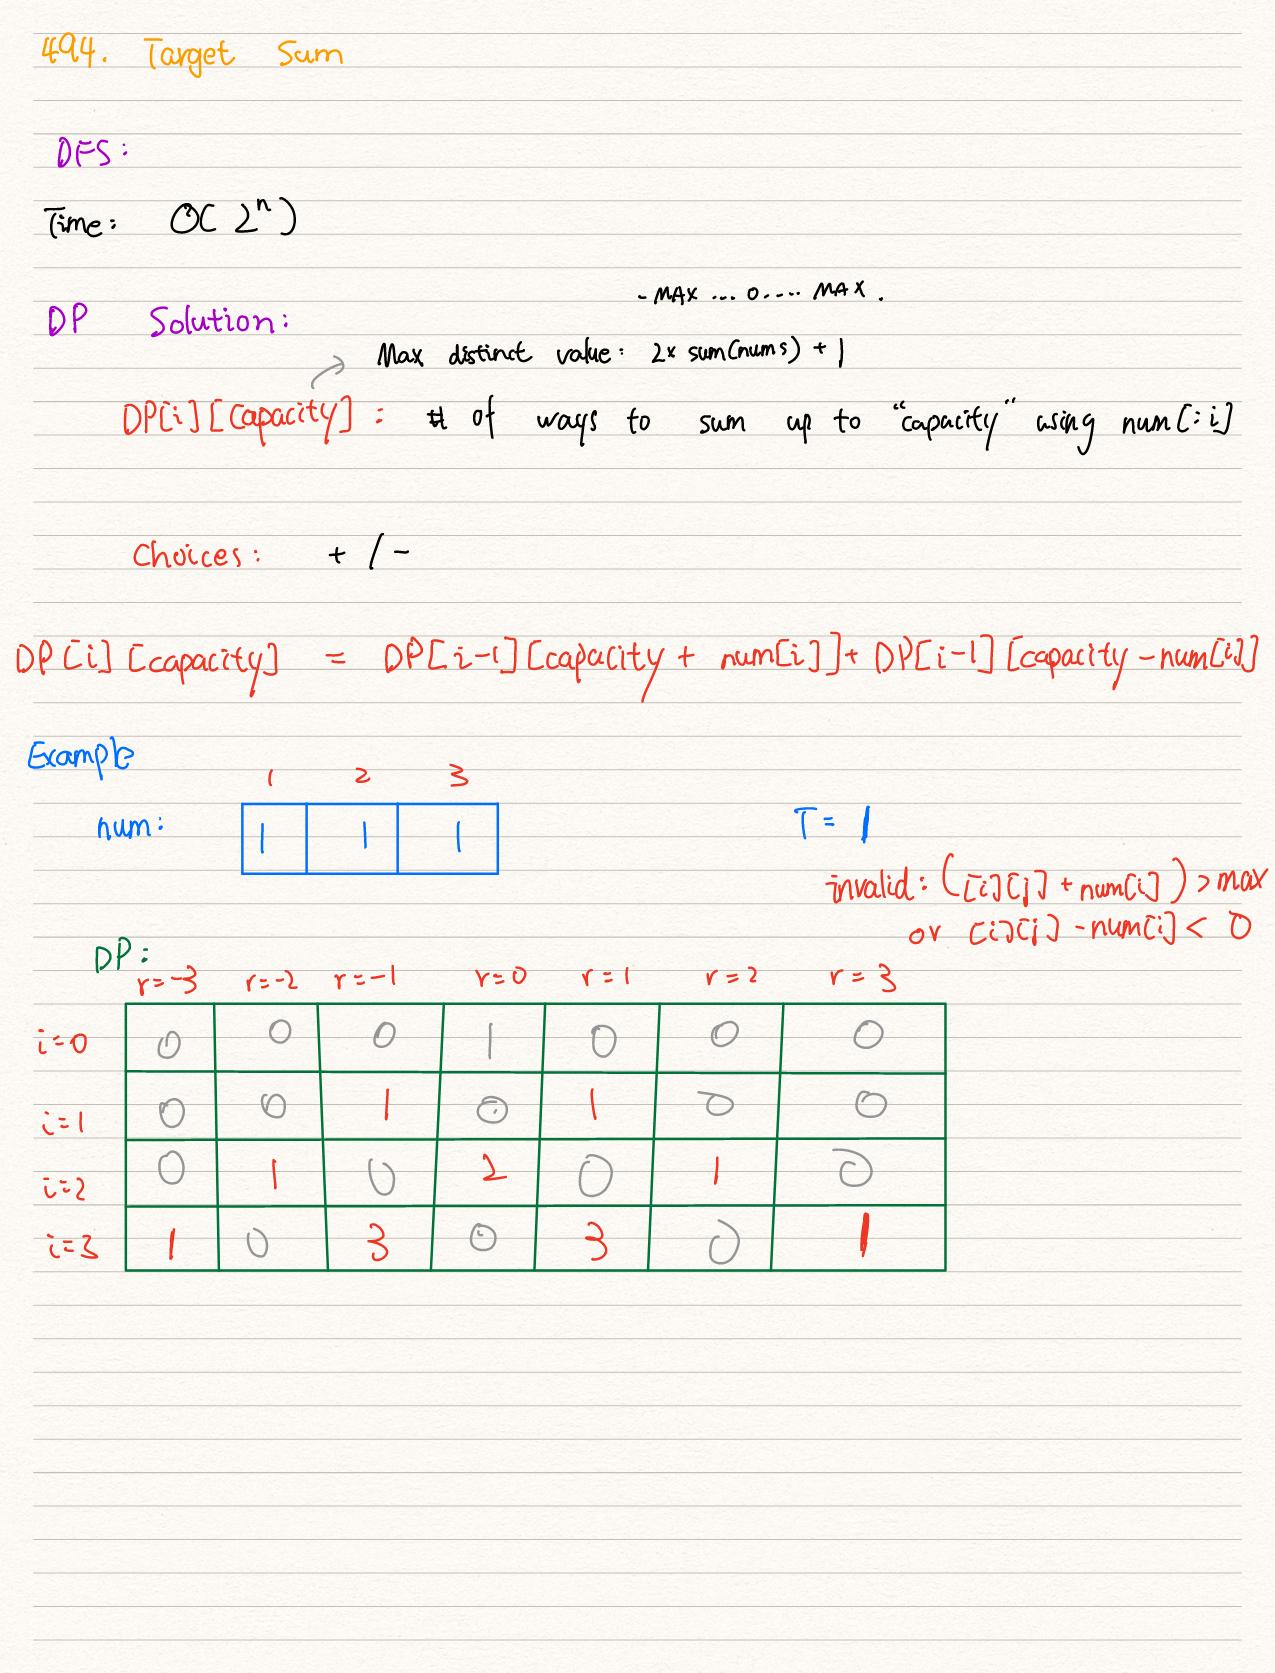 494. Target Sum
DFS:
Time: O( 2^n )
- MAX ... 0 .... MAX .
DP Solution:
Max distinct value: 2x sum(nums) + 1
DP[i][capacity] : # of ways to sum up to "capacity" using num[:i]
Choices: + / -
DP[i][capacity] = DP[i-1][capacity + num[i]] + DP[i-1][capacity - num[i]]
Example
1 2 3
num: 1 1 1 T = 1
invalid: ([i][j] + num[i]) > max
or [i][j] - num[i] < 0
DP:
r=-3 r=-2 r=-1 r=0 r=1 r=2 r=3
i=0 0 0 0 1 0 0 0
i=1 0 0 1 0 1 0 0
i=2 0 1 0 2 0 1 0
i=3 1 0 3 0 3 0 1